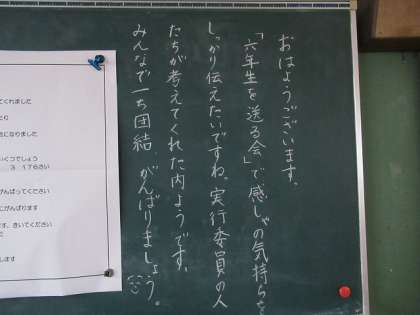 おはようございます。
「六年生を送る会」で感しゃの気持ちを
しっかり伝えたいですね。実行委員の人
たちが考えてくれた内ようです。
みんなで一ち団結 がんばりましょう。
てくれました
とり
になりました
いくつでしょう
3 176さい
がんばってください
にがんばります
す。きいてください
します